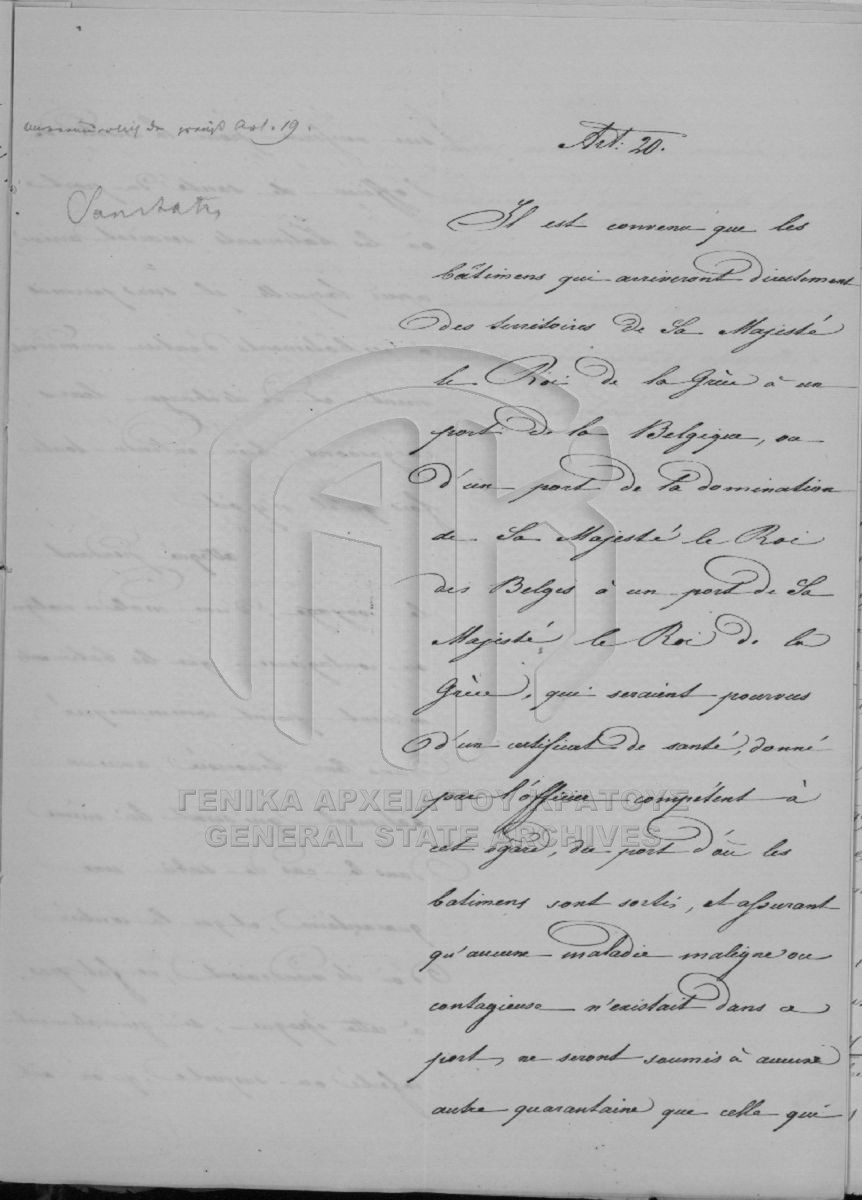 Art. 19.
Art. 20.
Sanitäts
Il est convenu que les
bâtimens qui arriveront directement
des territoires de Sa Majesté
le Roi de la Grèce à un
port de la Belgique, ou
d'un port de la domination
de Sa Majesté le Roi
des Belges à un port de Sa
Majesté le Roi de la
Grèce, qui seraient pourvus
d'un certificat de santé, donné
par l'officier compétent à
cet égard, du port d'où les
batimens sont sortis, et assurant
qu'aucune maladie maligne ou
contagieuse n'existait dans ce
port, ne seront soumis à aucune
autre quarantaine que celle qui
ΓΕΝΙΚΑ ΑΡΧΕΙΑ ΤΟΥ ΚΡΑΤΟΥΣ
GENERAL STATE ARCHIVES